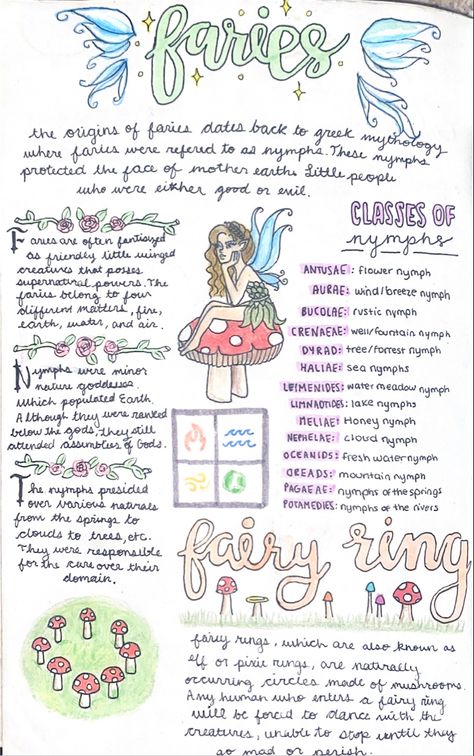 faries
the origins of faries dates back to greek mythology
where faries were refered to as nymphs. These nymphs
protected the face of mother earth. Little people
who were either good or evil.
Faries are often fantisized
as friendly little winged
creatures that posses
supernatural powers. The
faries belong to four
different matters, fire,
earth, water, and air.
Nymphs were minor
nature goddesses
which populated Earth.
Although they were ranked
below the gods, They still
attended assemblies of Gods.
The nymphs presided
over various naturals
from the springs to
clouds to trees, etc.
They were responsible
for the care over their
domain.
CLASSES OF
nymphs
ANTUSAE: flower nymph
AURAE: wind/breeze nymph
BUCOLAE: rustic nymph
CRENAENE: well/fountain nymph
DYRAD: tree/forrest nymph
HALIAE: sea nymphs
LEIMENIDES: water meadow nymph
LIMNAOTIDES: lake nymphs
MELIAE: Honey nymph
NEPHELAE: cloud nymph
OCEANIDS: fresh water nymph
OREADS: mountain nymph
PAGAEAE: nymphs of the springs
POTAMEDIES: nymphs of the rivers
fairy ring
fairy rings, which are also known as
elf or pixie rings, are naturally
occurring circles made of mushrooms.
Any human who enters a fairy ring
will be forced to dance with the
creatures, unable to stop until they
go mad or perish.